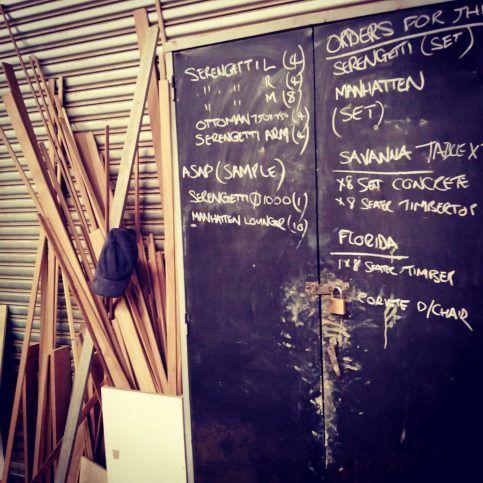 SERENGETTI L (4)
" " R (4)
" " M (8)
OTTOMAN 750X750 (4)
SERENGETTI ARM (4)
ASAP (SAMPLE)
SERENGETTI Ø 1000 (1)
MANHATTEN LOUNGER (10)
ORDERS FOR
SERENGETTI (SET)
MANHATTEN
(SET)
SAVANNA TABLE X
X8 SET CONCRETE
X8 SEATER TIMBERTOP
FLORIDA
1X8 SEATER TIMBER
D/CHAIR